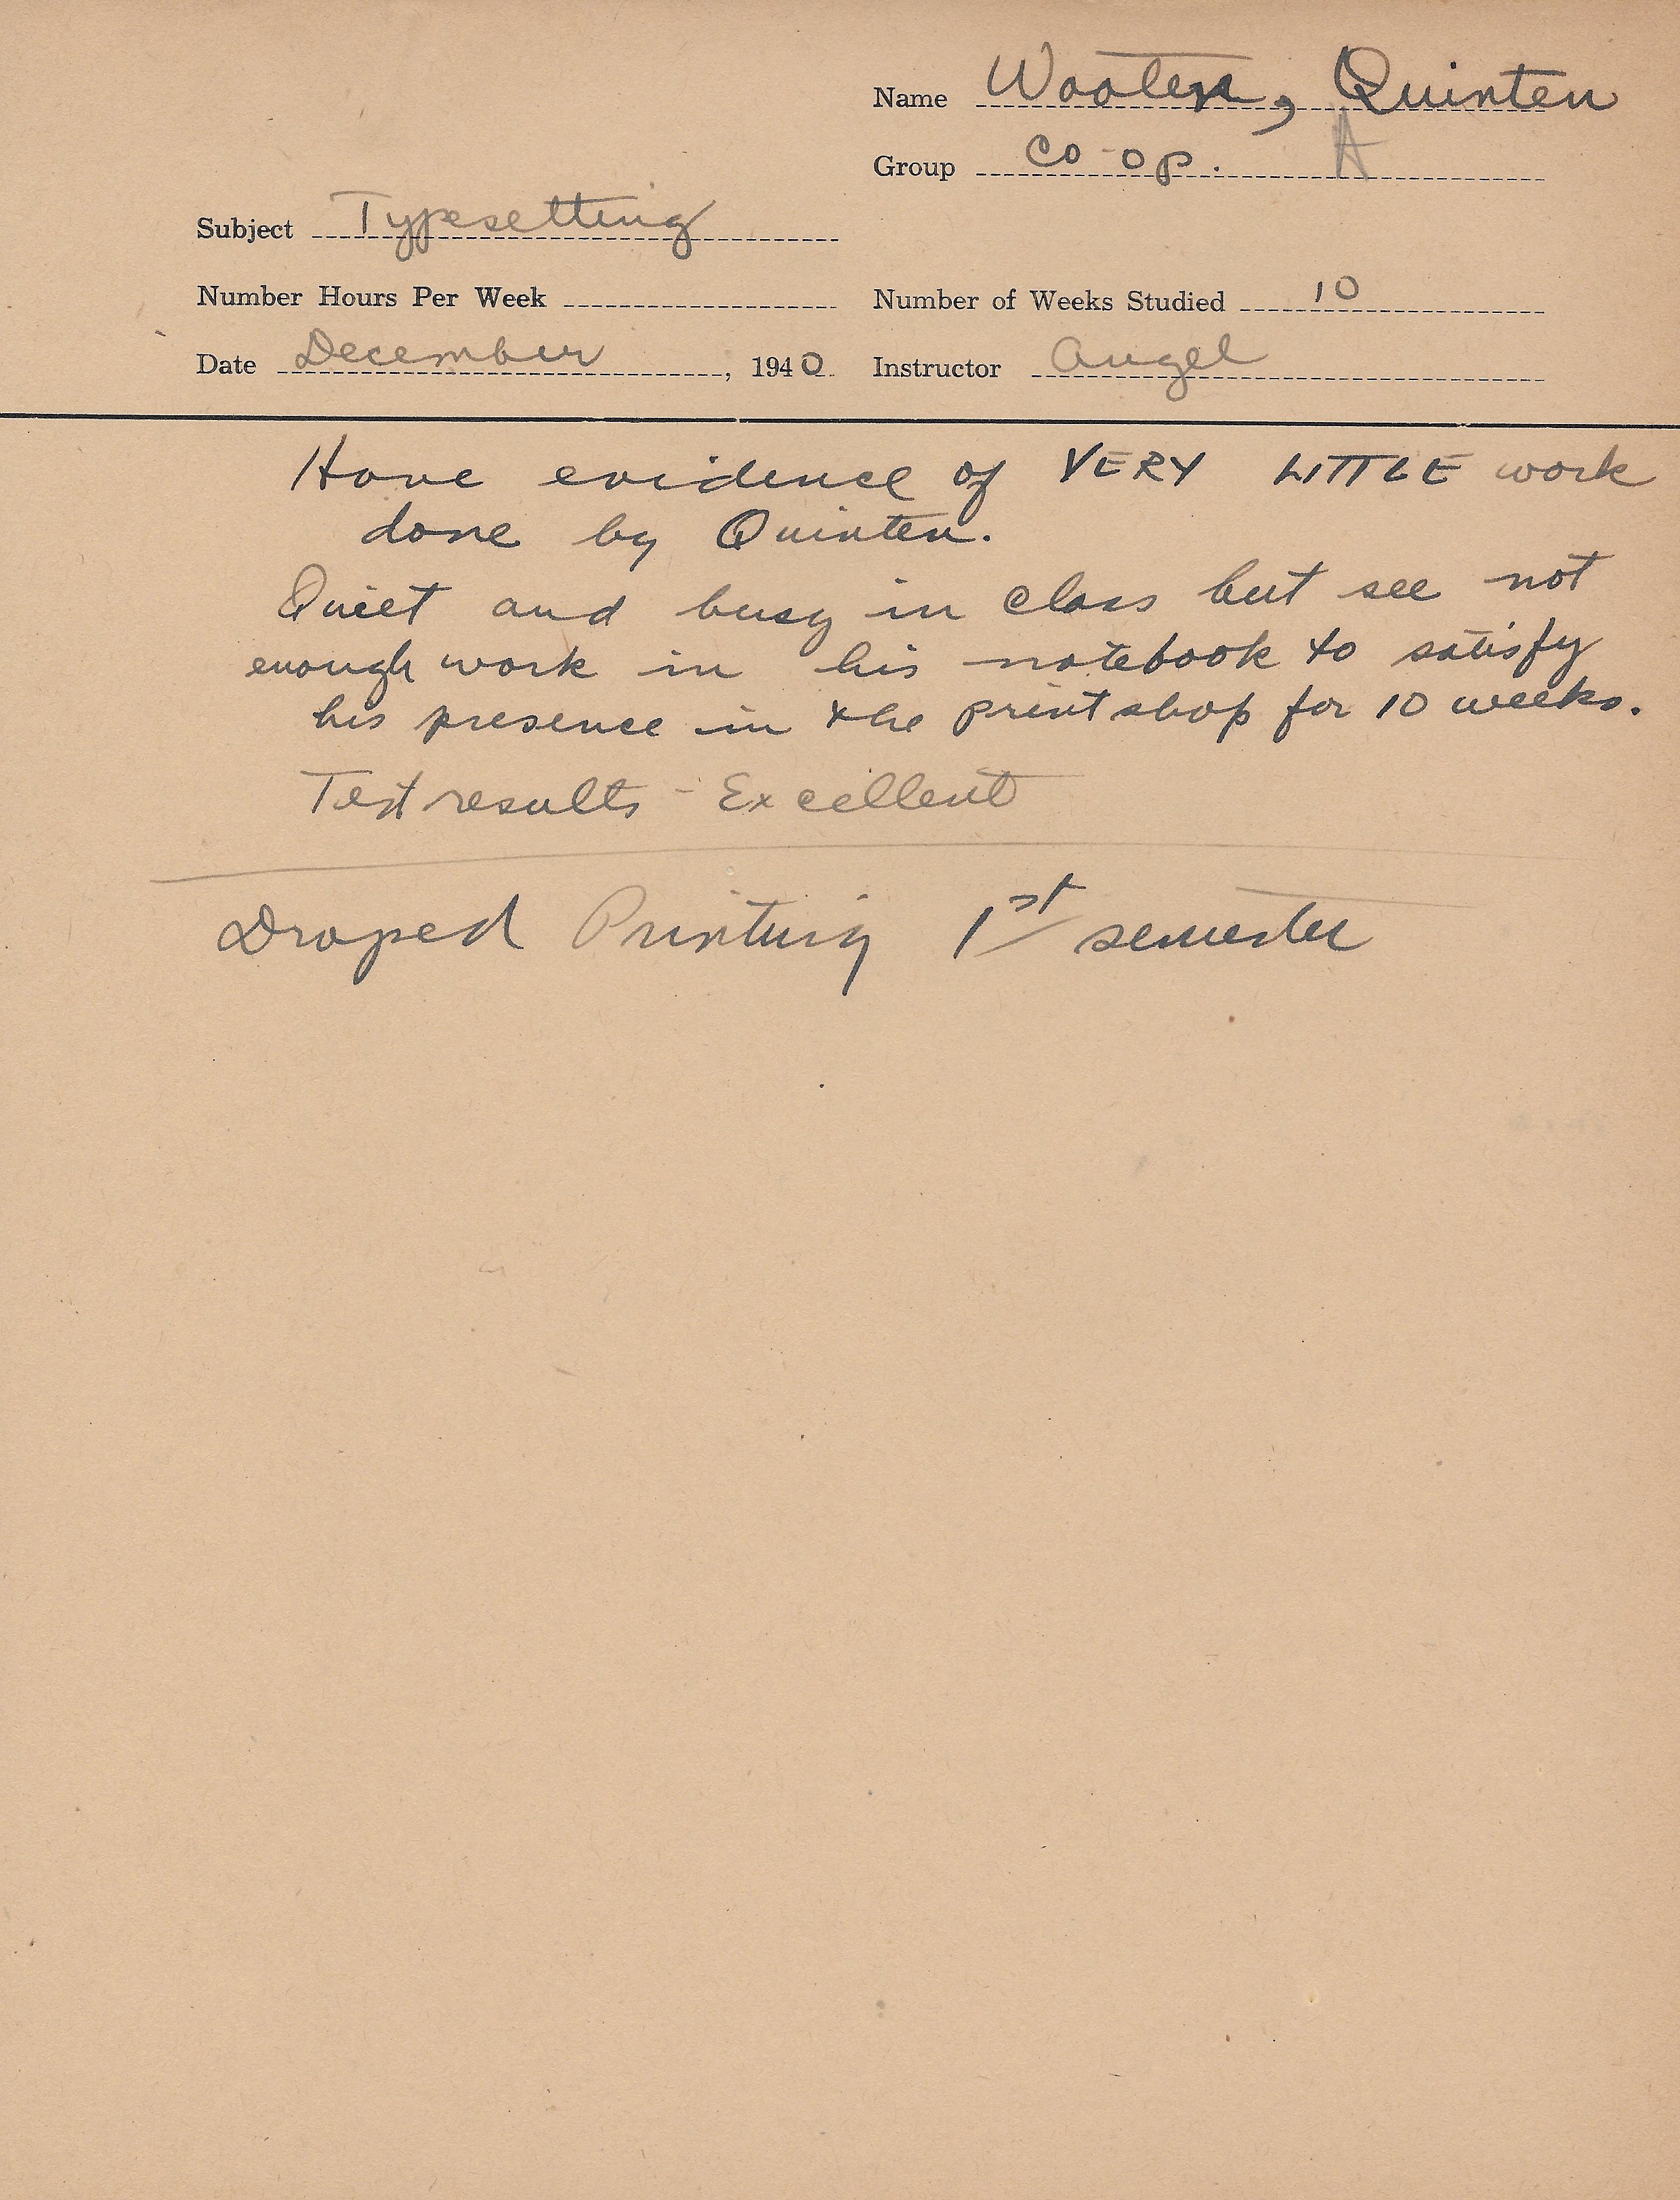 Name Wooten, Quinten
Group co-op. A
Subject Typesetting
Number Hours Per Week
Number of Weeks Studied 10
Date December, 1940
Instructor Angel
Have evidence of VERY LITTLE work
done by Quinten.
Quiet and busy in class but see not
enough work in his notebook to satisfy
his presence in the printshop for 10 weeks.
Test results - Excellent
Droped Printing 1st semester